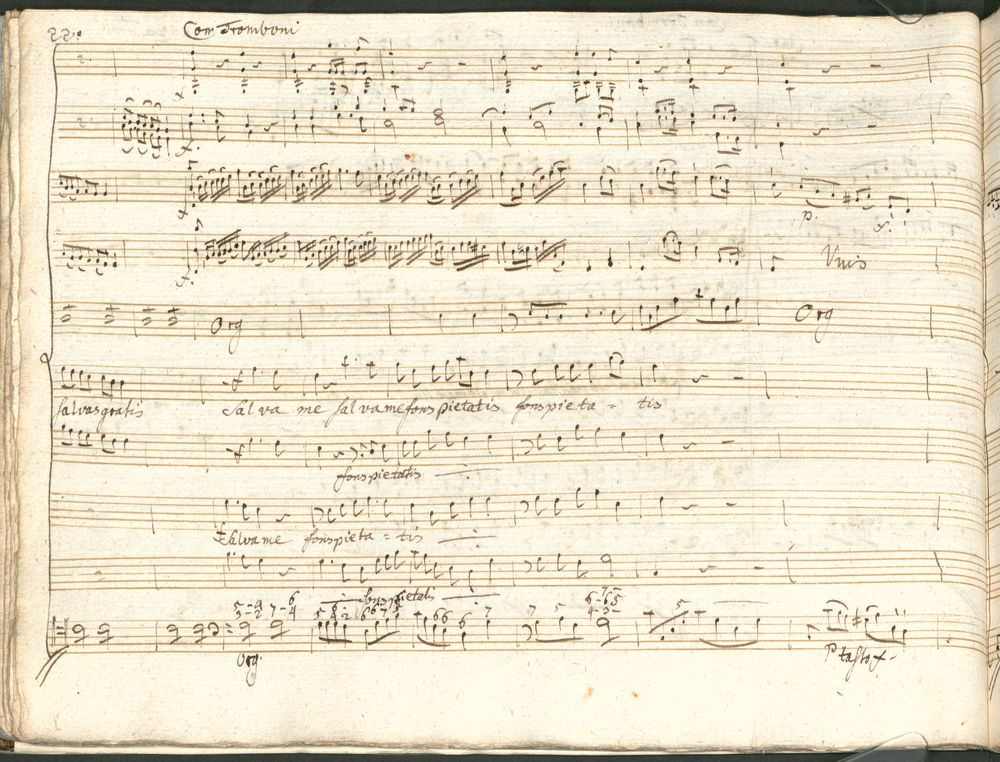 22. Con Tromboni
f
f.
f p. f.
f. Unis
Org Org
salvas gratis Salva me salva me fons pietatis fons pieta = tis
fons pietatis
Salva me fons pieta = tis
fons pietatis
5 - 4 7 - 6
3 - 2 4
7 5 6 - 6 5
4 - 3 -
5
Org. P tasto f.